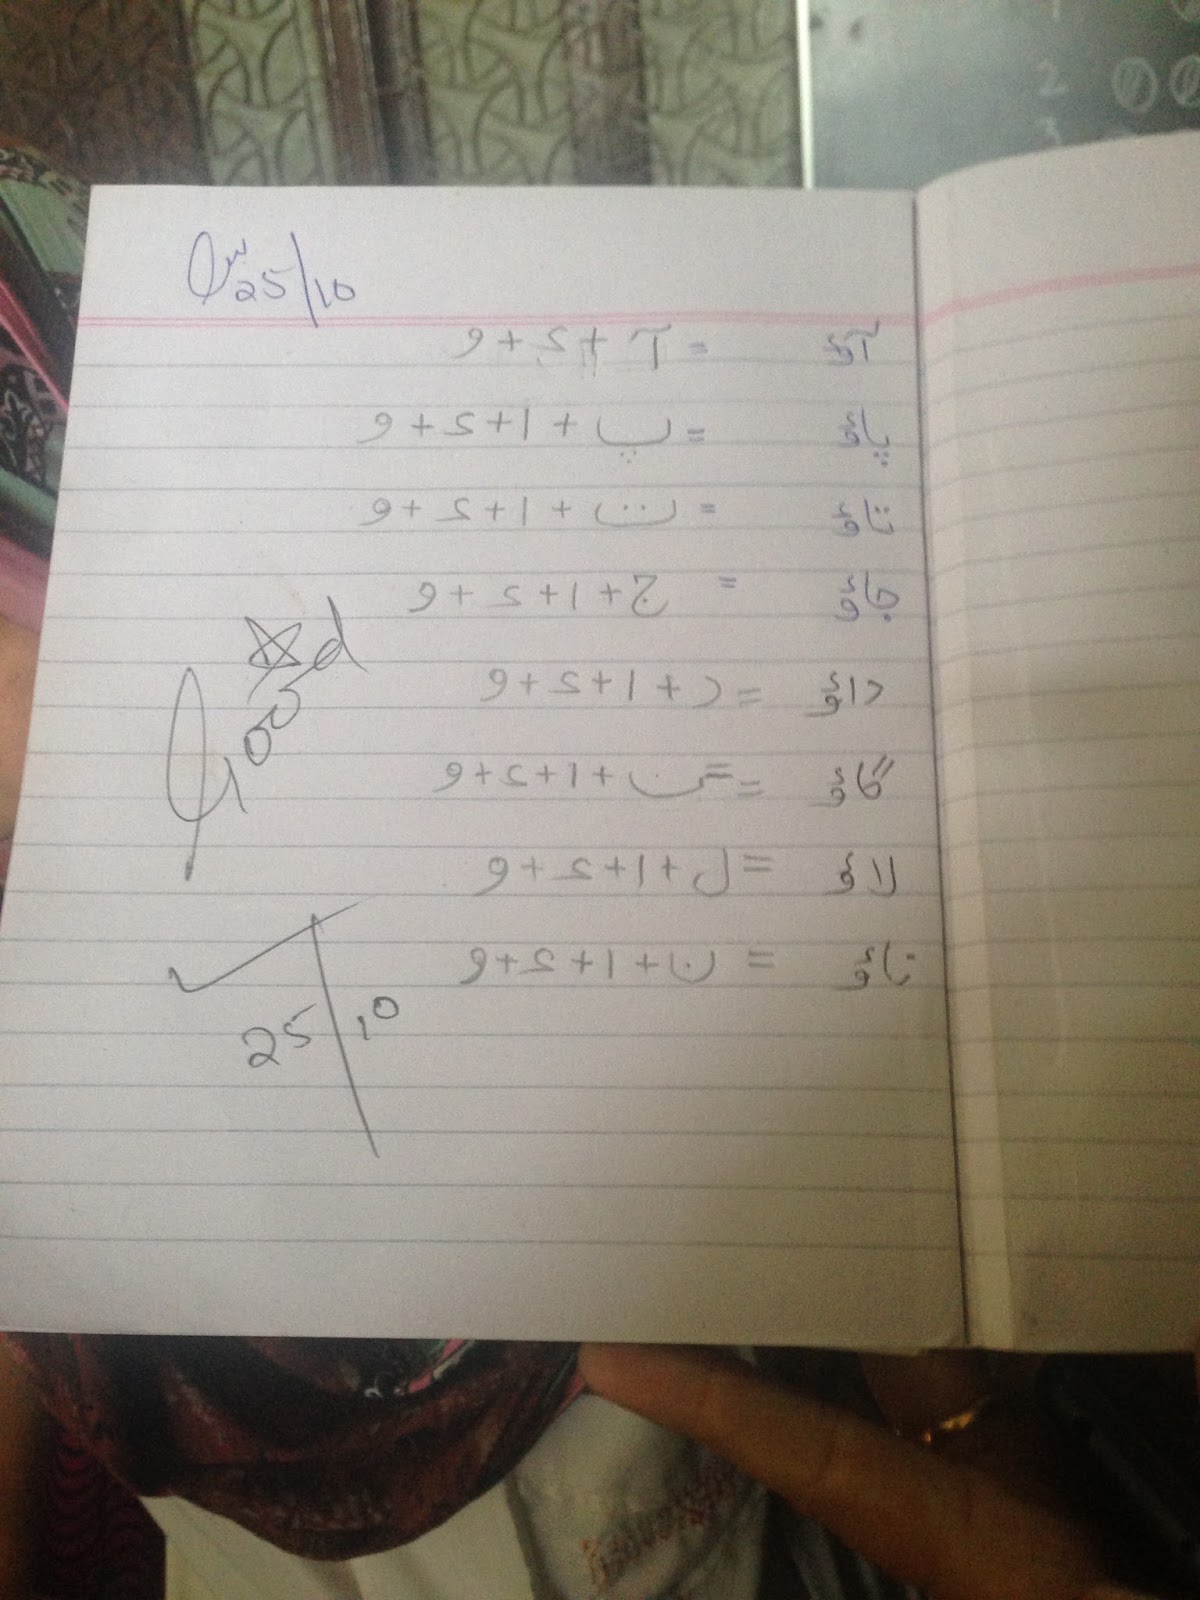 25/10
آؤ = آ + ء + و
پاؤ = پ + ا + ء + و
تاؤ = ت + ا + ء + و
جاؤ = ج + ا + ء + و
داؤ = د + ا + ء + و
گاؤ = گ + ا + ء + و
لاؤ = ل + ا + ء + و
ناؤ = ن + ا + ء + و
Good
25/10
2
3